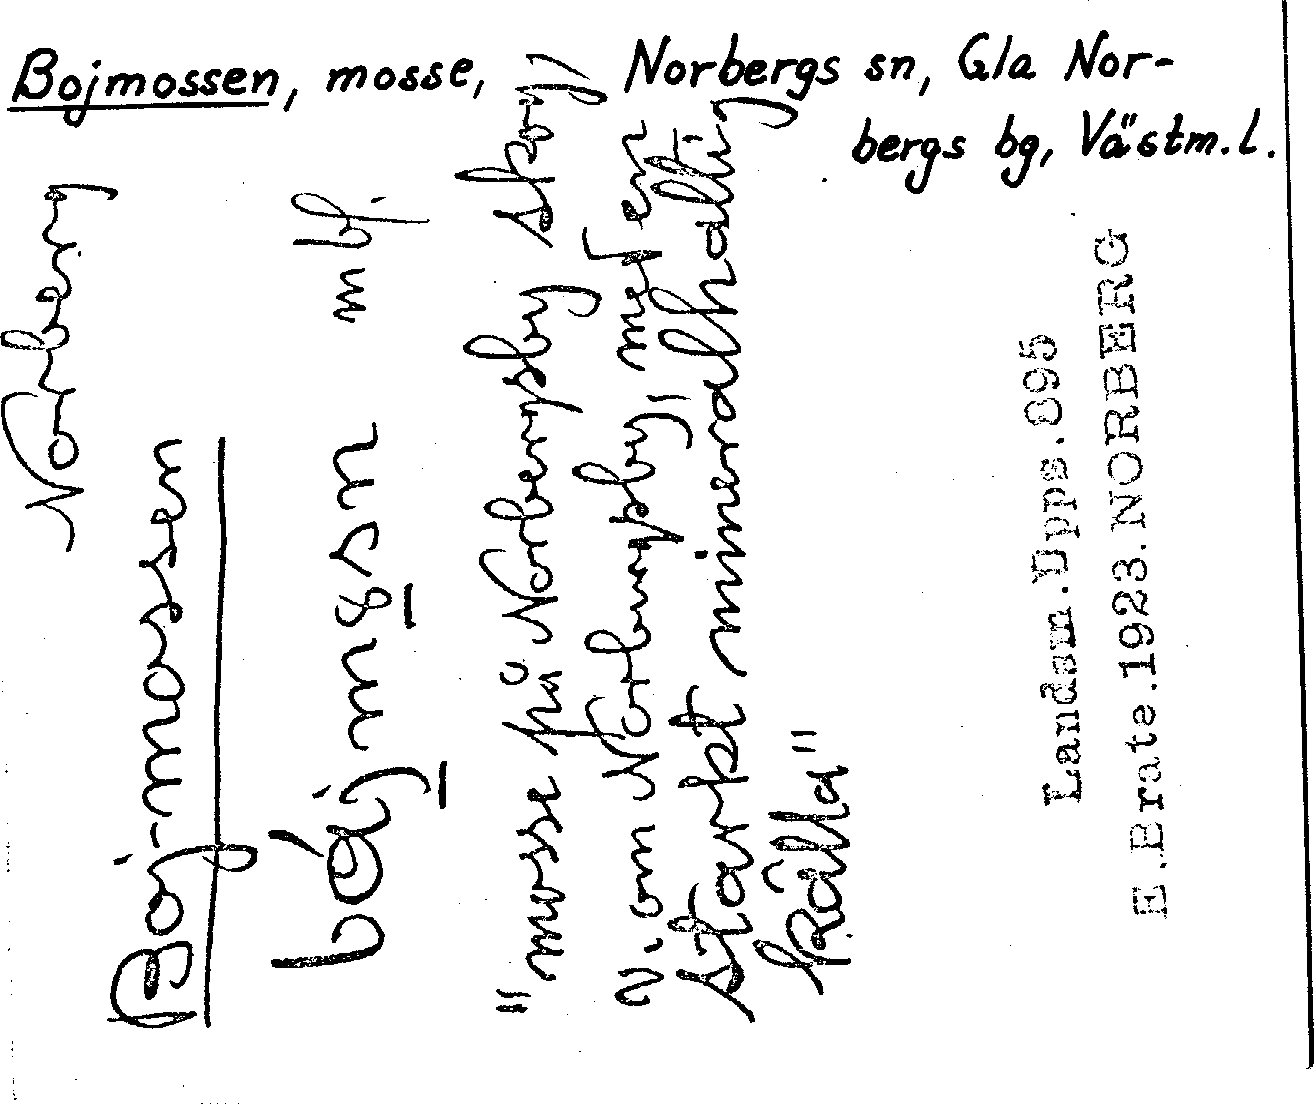 Bojmossen, mosse, Norbergs sn, Gla Nor-
bergs bg, Västm.l.
Norberg
Boj-mossen
mbf
"mosse på Norbergsby skog,
v. om Norbergsby, med en
starkt mineralhaltig
källa"
Landsm.Upps.895
E.Brate.1923.NORBERG